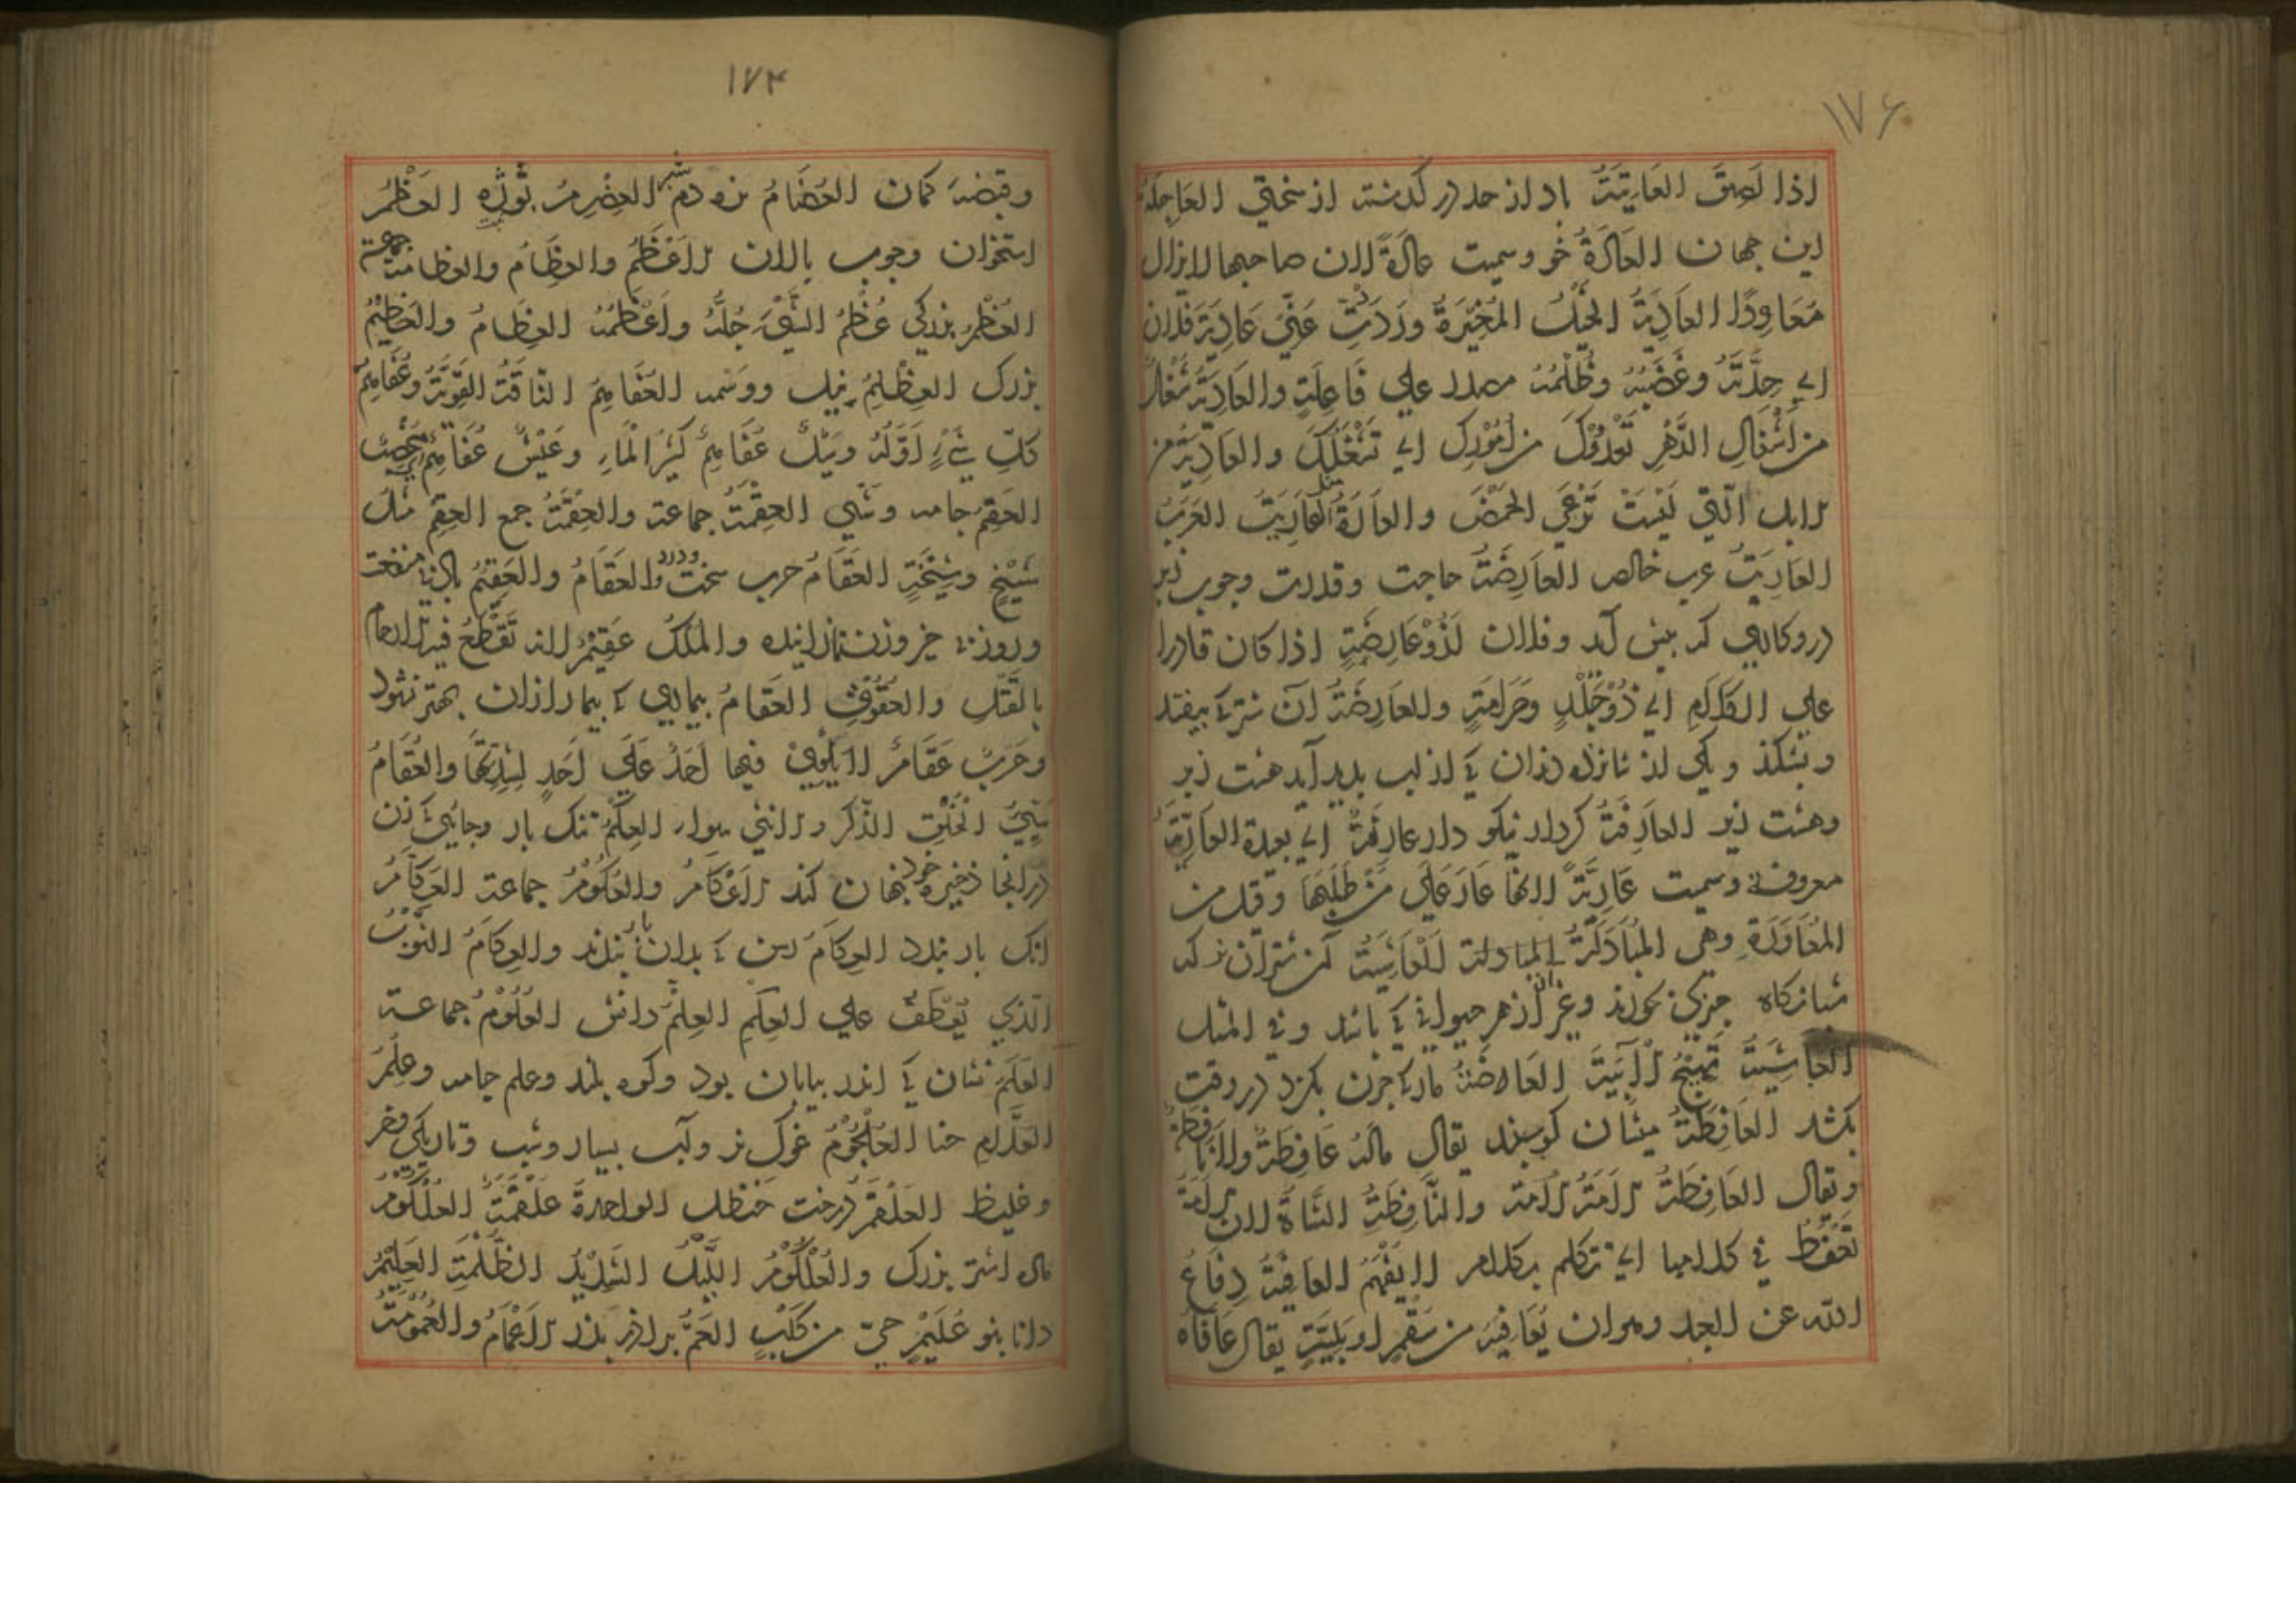 ١٧۶
اذا لَصِقَ العَاتِيَةُ باد از حد در گذشته از سختی العَاجِلَةُ
این جهان العَادَةُ خو وسمیت عَادَةً لان صاحبها لایزال
مُعَاوِدًا العَادِيَةُ الخَيْلُ المُغِيْرَةُ ورَدَدْتُ عَنِّي عَادِيَةَ فلان
اي حِدَّتَهُ وغَضَبَهُ وظُلْمَهُ مصدر علي فَاعِلَةٍ والعَادِيَةُ شُغْلٌ
من اَشْغَالِ الدَّهْرِ تَعْدُوْكَ من اُمُوْرِك اي تَشْغَلُكَ والعَادِيَةُ من
الابل الّتي لَيْسَتْ تَرْعَي الحَمْضَ والعَارَةُ العَارِيَةُ العَرَبُ
العَارِبَةُ عرب خالص العَارِضَةُ حاجت وقدرت وچوب زبر
در وکاری که پیش آید وفلان لَذُوْعَارِضَةٍ اذا کان قادرا
علي الکَلَامِ اي ذُوْجَلَدٍ وصَرَامَةٍ والعَارِضَةُ آن شتر که بیفتد
وبشکند ویکی از شانزده دندان که از لب پدید آید هشت زبر
وهشت زیر العَارِفَةُ کردار نیکو دار عارفَةٌ اي بعیدة العَارِيَّةُ
معروفة وسمیت عَارِيَّةً لانها عَارٌ عَلَي مَنْ طَلَبَهَا وقیل من
المُعَاوَرَةِ وهي المُبَادَلَةُ المبادلة العَاشِيَةُ آن شتران که
شبانگاه چیزی بخورند وغیر آن از هر حیوانی که باشد وفي المثل
العَاشِيَةُ تَهِيْجُ الْآبِيَةَ العَاضِهَةُ مار که چون بگزد در وقت
بکشد العَافِطَةُ میشان گوسپند یقال مَالَهُ عَافِطَةٌ ولانَافِطَةٌ
ویقال العَافِطَةُ الاَمَةُ الاَمَة والنَّافِطَةُ الشَّاةُ لان الاَمَةَ
تَعْفِطُ في کلامها اي تتکلم بکلام لایُفْهَمُ العَافِيَةُ دِفَاعُ
الله عن العبد وهوان یُعَافِیَهُ من سَقْمٍ او بَلِيَّةٍ یقال عَافَاهُ
١٧۴
وقبضهٔ کمان العُضَامُ بن دم شتر العِضْرِمُ بُوْزِه العَظْمُ
استخوان وچوب پالان الاَعْظُمُ والعِظَامُ والعظامَةُ جماعة
العُظْمُ بزرگی عُظْمُ الشَّيْءِ جُلُّهُ واَعْظَمُهُ العِظَامُ والعَظِيْمُ
بزرگ العِظْلِمُ نیل ووسمه العُفَاهِمُ النّاقَةُ القَوِيَّةُ وعُفَاهِمُ
کلِّ شَيْءٍ اَوَّلُهُ وسَيْلٌ عُفَاهِمٌ کَثِيْرُ الْمَاءِ وعَيْشٌ عُفَاهِمٌ اي مُخْصِبٌ
العَقْمُ جامه وَشْي العِقْمَةُ جماعة والعِقْمَةُ جمع العَقْمِ مثل
شَيْخٍ وشِيْخَةٍ العَقَامُ حرب سخت ودرد والعَقَامُ والعَقِيْمُ باد بی منفعت
وروز بی خیر وزن نازاینده والمُلْكُ عَقِيْمٌ لانه تُقْطَعُ فيه الارحام
بالقَتْلِ والعُقُوْقِ العُقَامُ بیماریی که بیمار ازان بهتر نشود
وحَرْبٌ عَقَامٌ لا يَلْوِي فيها اَحَدٌ عَلَي اَحَدٍ لِشِدَّتِهَا والعُقَامُ
سَيِّئُ الْخُلُقِ الذَّکر والانثی سواء العِكْمُ تنگ بار وجایی که زن
در انجا ذخیرهٔ خود پنهان کند الاَعْكَامُ والعُكُوْمُ جماعة العَكَّامُ
انک بار بندد العِكَامُ رسن که بدان بار بندند والعِكَامُ الثَّوْبُ
الّذي يُعْطَفُ علي العِكَمِ العِلْمُ دانش العُلُوْمُ جماعة
العَلَمُ نشان که اندر بیابان بود وکوه بلند وعلم جامه وعِلْمٌ
العُلَّامِ حنا العُلْجُوْمُ غوک نر وآب بسیار وشب وتاریکی وخر
وغلیظ العَلْقَمُ درخت حَنْظَل الواحدة عَلْقَمَةٌ العُلْكُوْمُ
ماده اشتر بزرگ والعُلْكُوْمُ اللَّيْلُ الشَّدِيْدُ الظُّلْمَةِ العَلِيْمُ
دانا بنو عُلَيْمٍ حيّ من كَلْبٍ العَمُّ برادر پدر الاَعْمَامُ والعُمُوْمَةُ